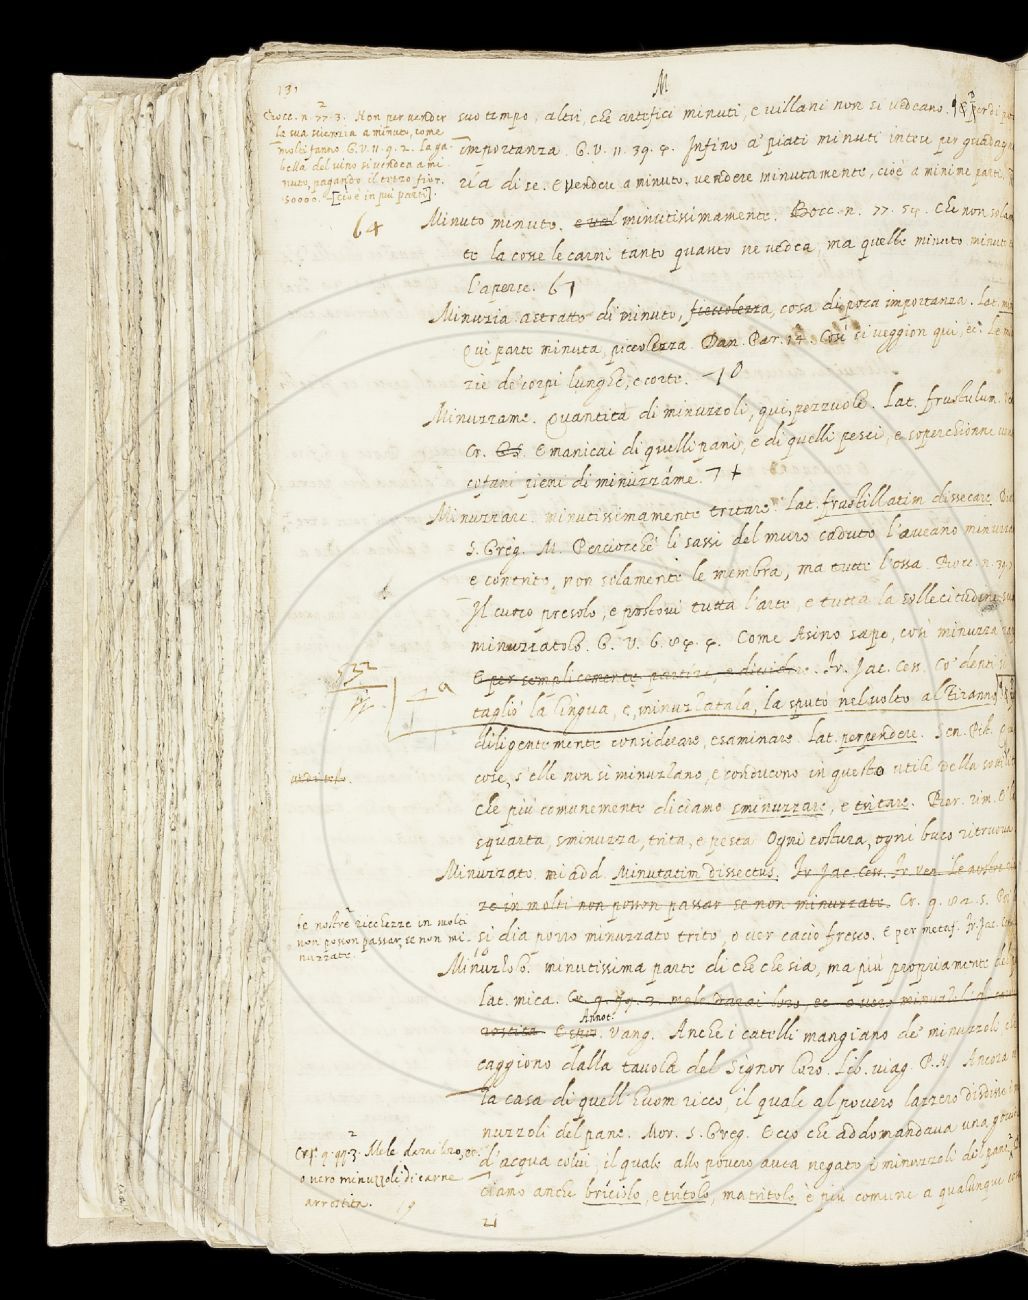 131
M
Bocc. n. 77. 3. Non per vender
la sua scienzia a minuto, come
molti fanno. G. V. 11. 9. 2. La ga-
bella del vino si vendea a mi-
nuto, pagando il terzo fior.
50000. [cioè in più parti]
suo tempo, altri, che artefici minuti, e villani non si vedeano.
importanza. G. V. 11. 39. 4. Infino a' piati minuti intese per
ria di se. E vendere a minuto. vendere minutamente, cioè a minime parti.
64
Minuto minuto. minutissimamente. Bocc. n. 77. 54. Che non
te la cosse le carni tanto quanto ne vedea, ma quelle minuto
l'aperse. 61
Minuzia astratto di minuto, cosa di poca importanza. Lat.
Qui parte minuta, piccolezza. Dan. Par. 14. Così si veggion qui, ec.
zie de' corpi lunghe, e corte. 10
Minuzzame. Quantità di minuzzoli, qui, pezzuole. Lat. frustulum.
Cr. E manicai di quelli pani, e di quelli pesci, e soperchionne
cofani pieni di minuzzame. 7 +
Minuzzare. minutissimamente tritare. Lat. frustillatim dissecare.
S. Greg. M. Perciocchè li sassi del muro caduto l'aveano
e contrito, non solamente le membra, ma tutte l'ossa. Bocc. n.
Il cuoco presolo, e postovi tutta l'arte, e tutta la sollecitudine
minuzzatolo. G. V. 6. Come Asino sape, così minuzza
E per semplicemente partire, e dividere. Fr. Jac. Cess. Co' denti
tagliò la lingua, e, minuzzatala, la sputò nel volto al Tiranno
diligentemente considerare, esaminare. Lat. perpendere. Sen. Pist.
cose, s'elle non si minuzzano, e conducono in questo utile della
che più comunemente diciamo sminuzzare, e tritare. rim.
squarta, sminuzza, trita, e pesta Ogni costura, ogni buco
Minuzzato. m. add. Minutatim dissectus. Fr. Jac. Cess. Fr. ven. le nostre
ze in molti non posson passar se non minuzzate. Cr. 9.
le nostre ricchezze in molti
non posson passar, se non mi-
nuzzate.
si dia porro minuzzato trito, o ver cacio fresco. E per metaf. Fr. Jac.
Minuzzolo. minutissima parte di che che sia, ma più propriamente
lat. mica. Cr. 9. 99. 3. mele darai loro, ec. o vero minuzzoli
arrostita. Annot. Vang. Anche i catelli mangiano de' minuzzoli
caggiono dalla tavola del Signor loro. Lib. viag. Ancora
la casa di quell'huom ricco, il quale al povero lazzero disdisse
nuzzoli del pane. Mor. S. Greg. Ecco che addomandava una
d'acqua colui, il quale allo povero avea negato i minuzzoli del pane
ciamo anche briciolo, e tritolo, ma tritolo è più comune a qualunque
Cr. 9. 99. 3. Mele darai loro, ec.
o vero minuzzoli di carne
arrostita. 19